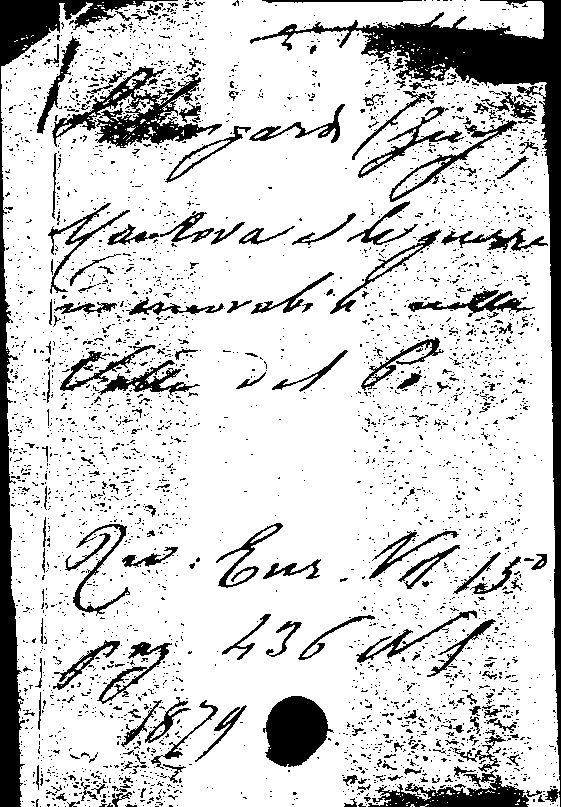 Mantova e le guerre
memorabili nella
Valle del Po
Riv: Eur. Vol. 15°
pag. 436 N. S
1879